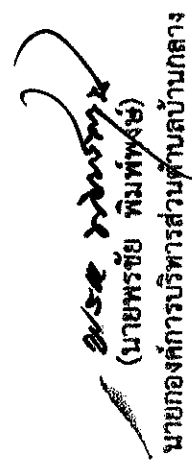 (นายพรชัย พิมพ์พงษ์)
นายกองค์การบริหารส่วนตำบลบ้านกลาง